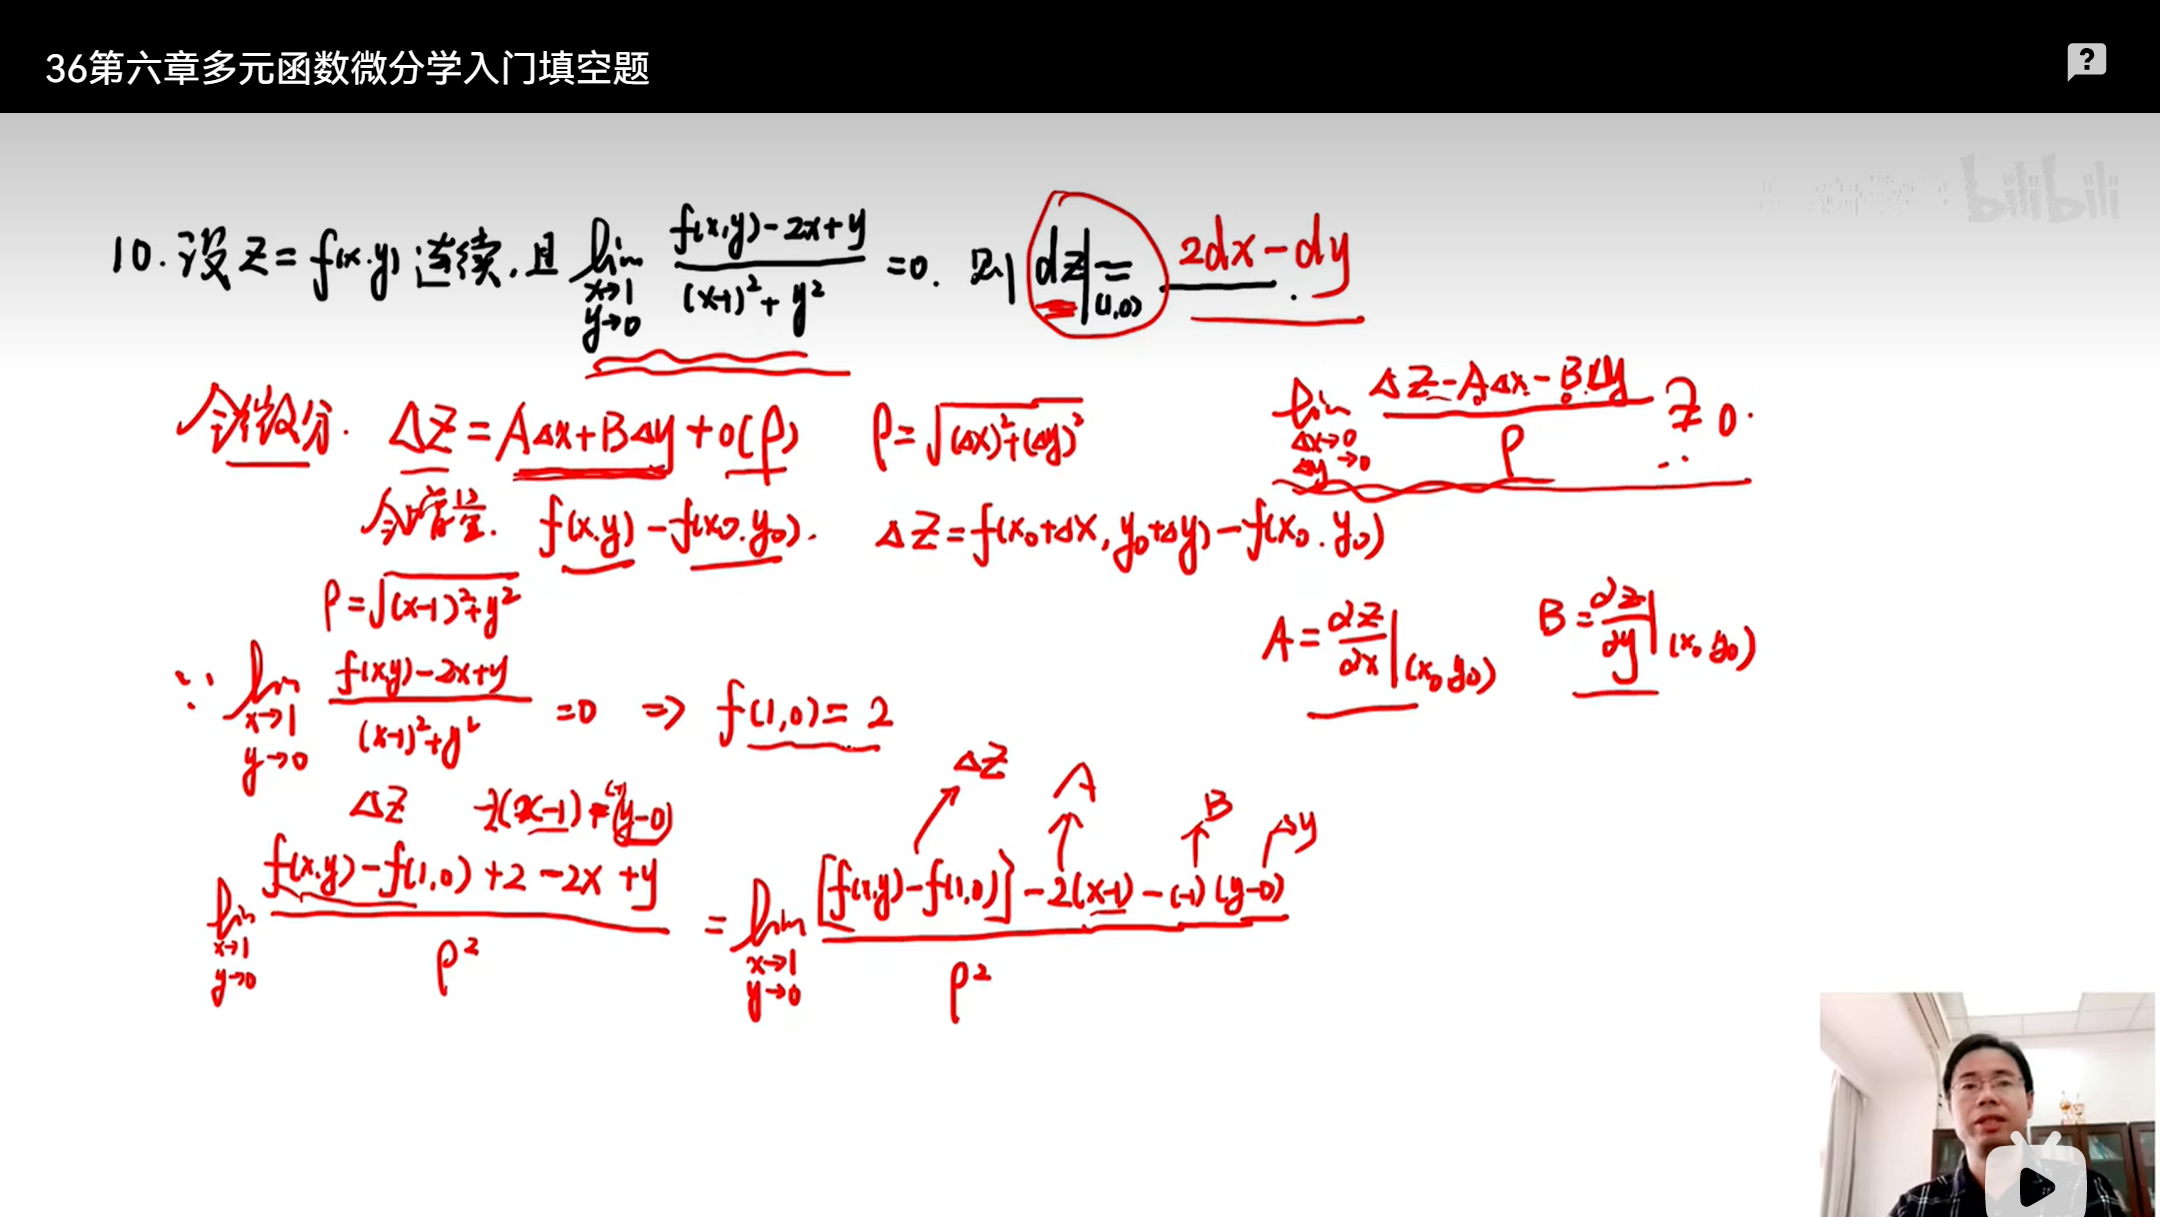 36第六章多元函数微分学入门填空题
bilibili
10.设z=f(x.y)连续,且 lim x→1 y→0 (f(x,y)-2x+y)/((x-1)²+y²) =0. 则 dz|(1,0) = 2dx-dy.
全微分. ΔZ=AΔx+BΔy+o(ρ) ρ=√((Δx)²+(Δy)²) lim Δx→0 Δy→0 (ΔZ-AΔx-BΔy)/ρ = 0.
全增量. f(x.y)-f(x0.y0). ΔZ=f(x0+Δx,y0+Δy)-f(x0.y0)
ρ=√((x-1)²+y²)
A=∂z/∂x|(x0,y0) B=∂z/∂y|(x0,y0)
∵ lim x→1 y→0 (f(x,y)-2x+y)/((x-1)²+y²) =0 ⇒ f(1,0)=2
ΔZ -2(x-1) (-1)(y-0) ΔZ A B Δy
lim x→1 y→0 (f(x.y)-f(1,0)+2-2x+y)/ρ² = lim x→1 y→0 ([f(x,y)-f(1,0)]-2(x-1)-(-1)(y-0))/ρ²